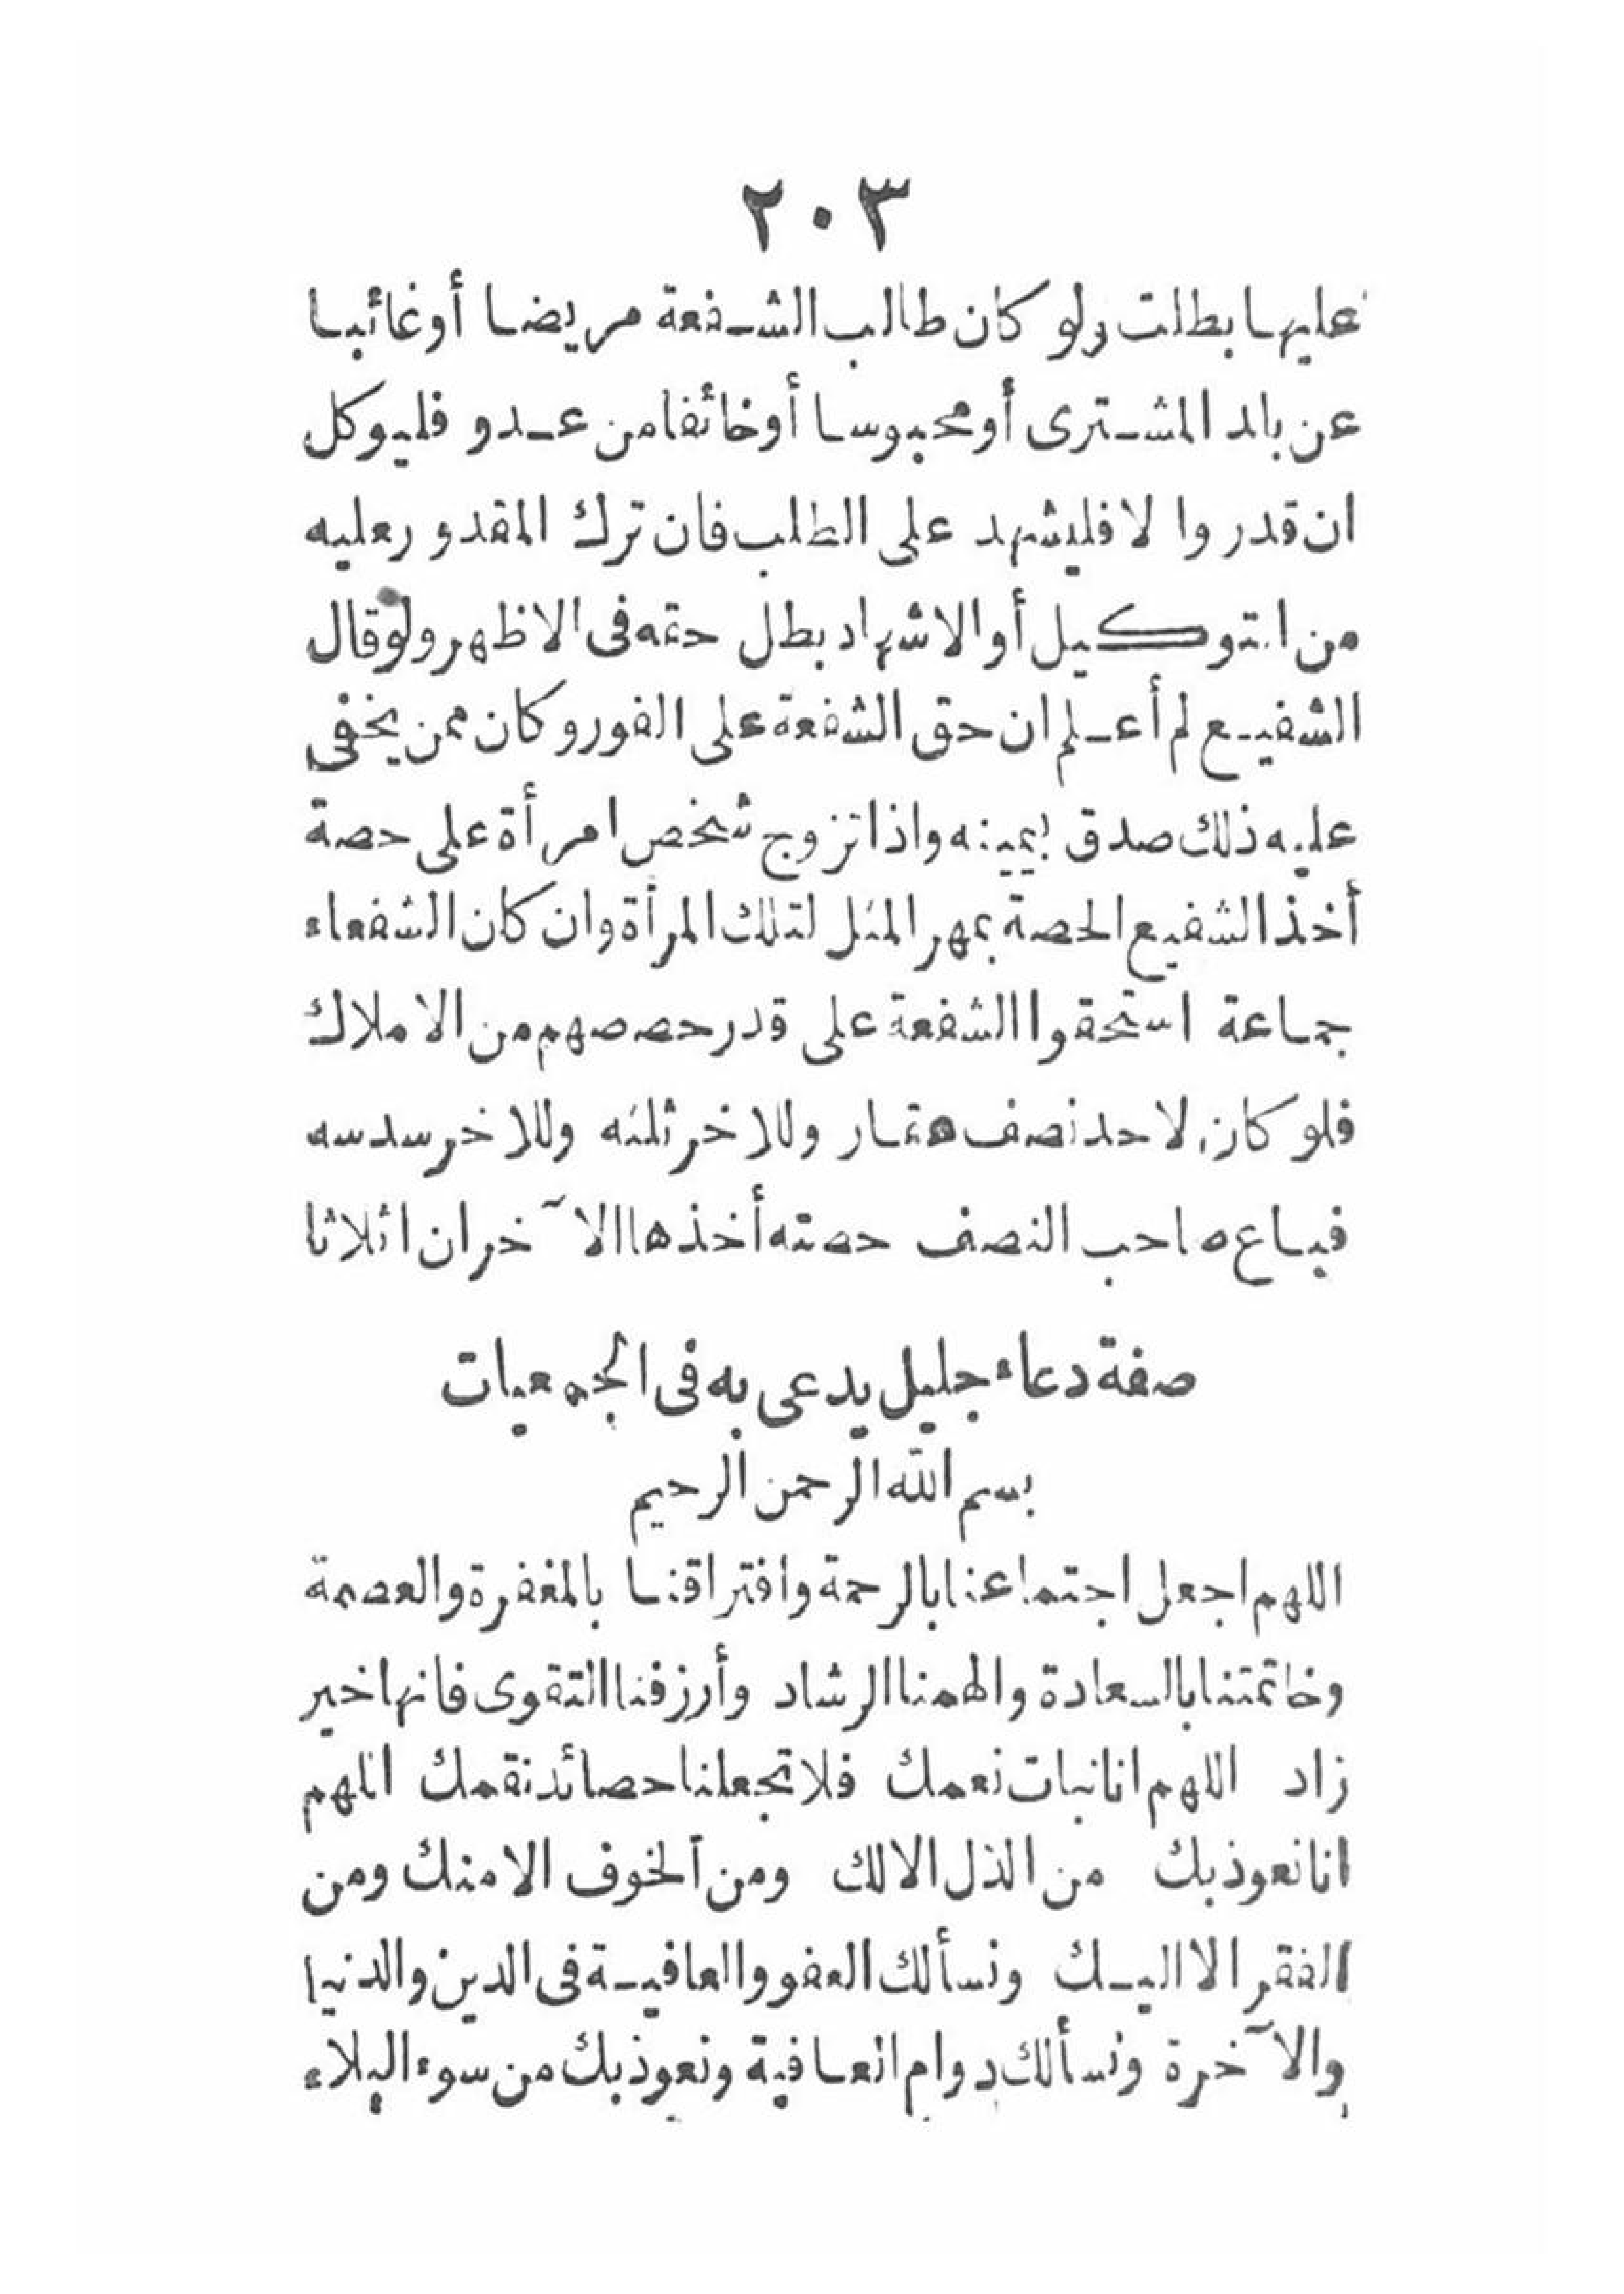 ٢٠٣
عليها بطلت ولو كان طالب الشفعة مريضا أو غائبا
عن بلد المشترى أو محبوسا أو خائفا من عدو فليوكل
ان قدر والا فليشهد على الطلب فان ترك المقدور عليه
من التوكيل أو الاشهاد بطل حقه فى الاظهر ولو قال
الشفيع لم أعلم ان حق الشفعة على الفور وكان ممن يخفى
عليه ذلك صدق بيمينه واذا تزوج شخص امرأة على حصة
أخذ الشفيع الحصة بمهر المثل لتلك المرأة وان كان الشفعاء
جماعة استحقوا الشفعة على قدر حصصهم من الاملاك
فلو كان لاحد نصف عقار وللاخر ثلثه وللاخر سدسه
فباع صاحب النصف حصته أخذها الآخران اثلاثا
صفة دعاء جليل يدعى به فى الجمعيات
بسم الله الرحمن الرحيم
اللهم اجعل اجتماعنا بالرحمة وافتراقنا بالمغفرة والعصمة
وخاتمتنا بالسعادة والهمنا الرشاد وأرزقنا التقوى فانها خير
زاد اللهم انا نبات نعمك فلا تجعلنا حصائد نقمك اللهم
انا نعوذ بك من الذل الا لك ومن الخوف الا منك ومن
الفقر الا اليك ونسألك العفو والعافية فى الدين والدنيا
والآخرة ونسألك دوام العافية ونعوذ بك من سوء البلاء